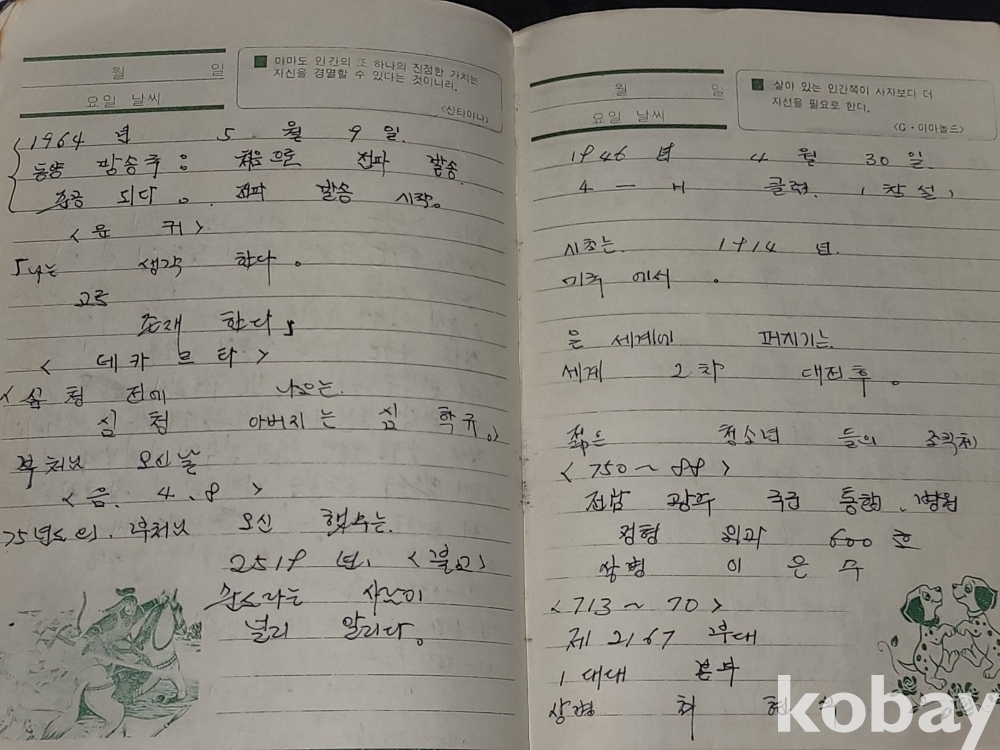 월 일
요일 날씨
아마도 인간의 또 하나의 진정한 가치는
자신을 경멸할 수 있다는 것이니라.
<신타이나>
1964 년 5 월 9 일.
동양 방송국 : 처음으로 전파 발송
준공 되다. 전파 발송 시작.
「나는 생각 한다.
고로
존재 한다」
< 데카르타 >
< 심청 전에 나오는.
심청 아버지는 심학규. >
부처님 오신날
< 음. 4. 8 >
75년도의. 부처님 오신 햇수는.
2519 년. <불교>
사람이
널리 알리다.
월 일
요일 날씨
살아 있는 인간쪽이 사자보다 더
지선을 필요로 한다.
<G·아아놀드>
1946 년 4 월 30 일.
4 — H 클럽. ( 창설 )
시초는. 1914 년.
미국 에서 .
은 세계에 퍼지기는.
세계 2차 대전후 .
젊은 청소년 들의 조직체
< 750 ~ 88 >
전남 광주 국군 통합. 병원
외과 600 호
상병 이 은 우
< 713 ~ 70 >
제 2167 부대
1 대대 본부
상병 최
kobay